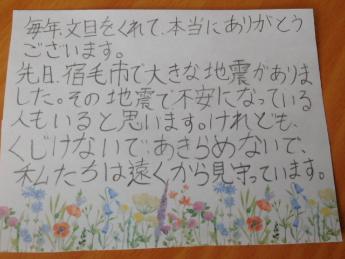 毎年、文旦をくれて、本当にありがとう
ございます。
先日、宿毛市で大きな地震がありま
した。その地震で不安になっている
人もいると思います。けれども、
くじけないで、あきらめないで、
私たちは遠くから見守っています。